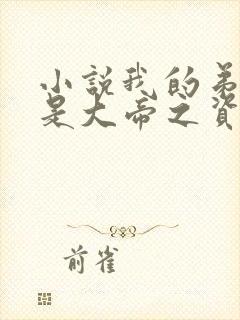 小説我的弟
是大帝之資
前雀